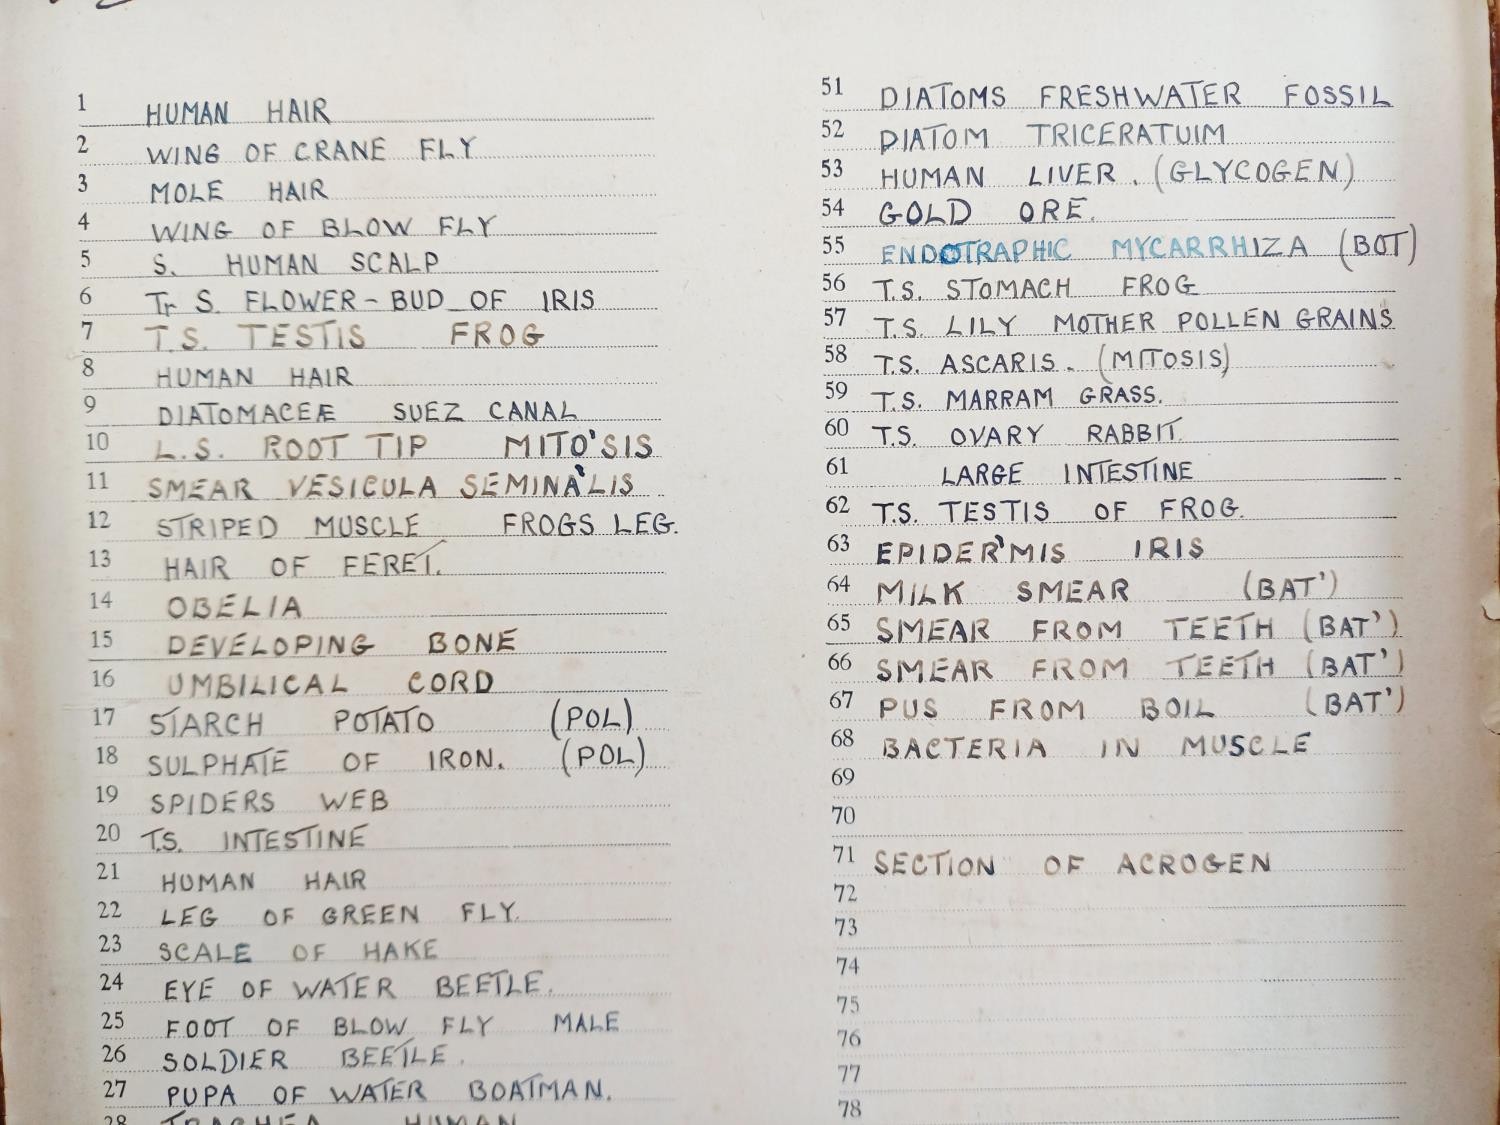 1 HUMAN HAIR
2 WING OF CRANE FLY
3 MOLE HAIR
4 WING OF BLOW FLY
5 S. HUMAN SCALP
6 Tr S. FLOWER-BUD OF IRIS
7 T.S. TESTIS FROG
8 HUMAN HAIR
9 DIATOMACEÆ SUEZ CANAL
10 L.S. ROOT TIP MITO'SIS
11 SMEAR VESICULA SEMINA'LIS
12 STRIPED MUSCLE FROGS LEG.
13 HAIR OF FERET.
14 OBELIA
15 DEVELOPING BONE
16 UMBILICAL CORD
17 STARCH POTATO (POL)
18 SULPHATE OF IRON. (POL)
19 SPIDERS WEB
20 T.S. INTESTINE
21 HUMAN HAIR
22 LEG OF GREEN FLY.
23 SCALE OF HAKE
24 EYE OF WATER BEETLE.
25 FOOT OF BLOW FLY MALE
26 SOLDIER BEETLE.
27 PUPA OF WATER BOATMAN.
28 TRACHEA HUMAN
51 DIATOMS FRESHWATER FOSSIL
52 DIATOM TRICERATUIM
53 HUMAN LIVER. (GLYCOGEN)
54 GOLD ORE.
55 ENDOTRAPHIC MYCARRHIZA (BOT)
56 T.S. STOMACH FROG
57 T.S. LILY MOTHER POLLEN GRAINS
58 T.S. ASCARIS. (MITOSIS)
59 T.S. MARRAM GRASS.
60 T.S. OVARY RABBIT.
61 LARGE INTESTINE
62 T.S. TESTIS OF FROG.
63 EPIDER'MIS IRIS
64 MILK SMEAR (BAT')
65 SMEAR FROM TEETH (BAT')
66 SMEAR FROM TEETH (BAT')
67 PUS FROM BOIL (BAT')
68 BACTERIA IN MUSCLE
69
70
71 SECTION OF ACROGEN
72
73
74
75
76
77
78